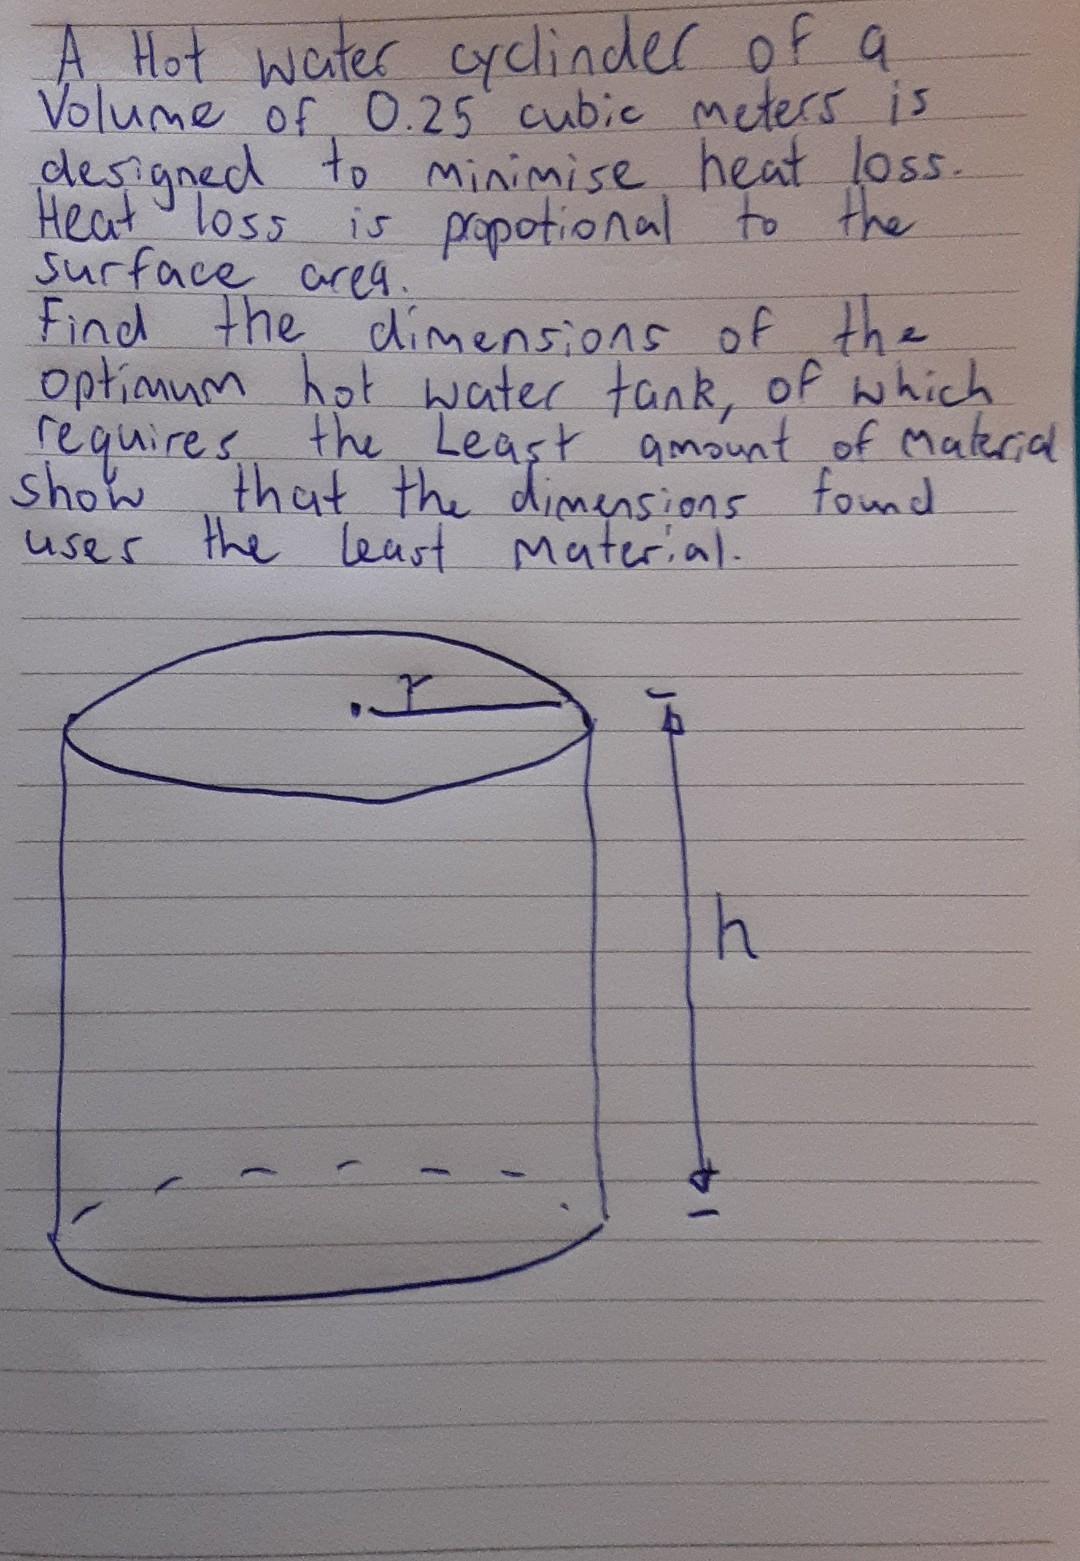 A Hot water cyclinder of a
Volume of 0.25 cubic meters is
designed to minimise heat loss.
Heat loss is propotional to the
surface area.
Find the dimensions of the
optimum hot water tank, of which
requires the Least amount of material
show that the dimensions found
uses the least material.
r
h